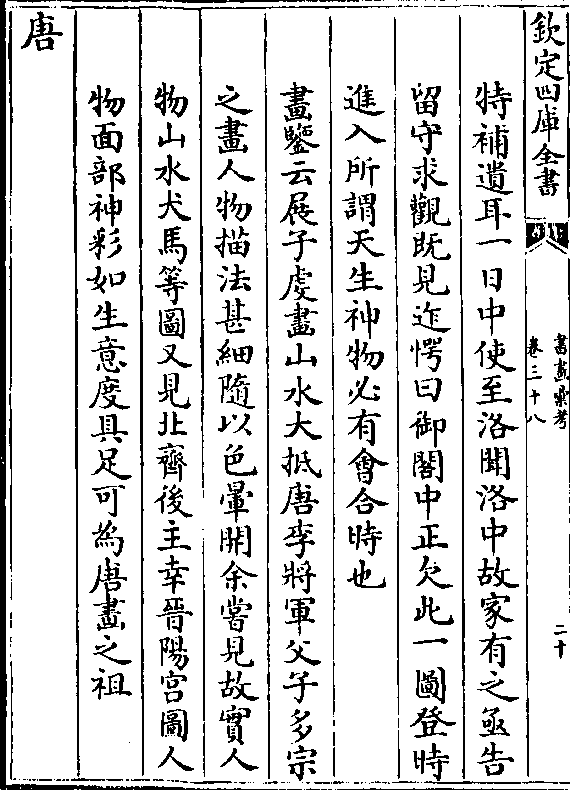 欽定四庫全書
書畫彙考
卷三十八
二十
特補遺耳一日中使至洛聞洛中故家有之亟告
留守求觀既見迮愕曰御閣中正欠此一圖登時
進入所謂天生神物必有會合時也
畫鑒云展子䖍畫山水大抵唐李將軍父子多宗
之畫人物描法甚細隨以色暈開余嘗見故實人
物山水犬馬等圖又見北齊後主幸晉陽宫圖人
物面部神彩如生意度具足可為唐畫之祖
唐